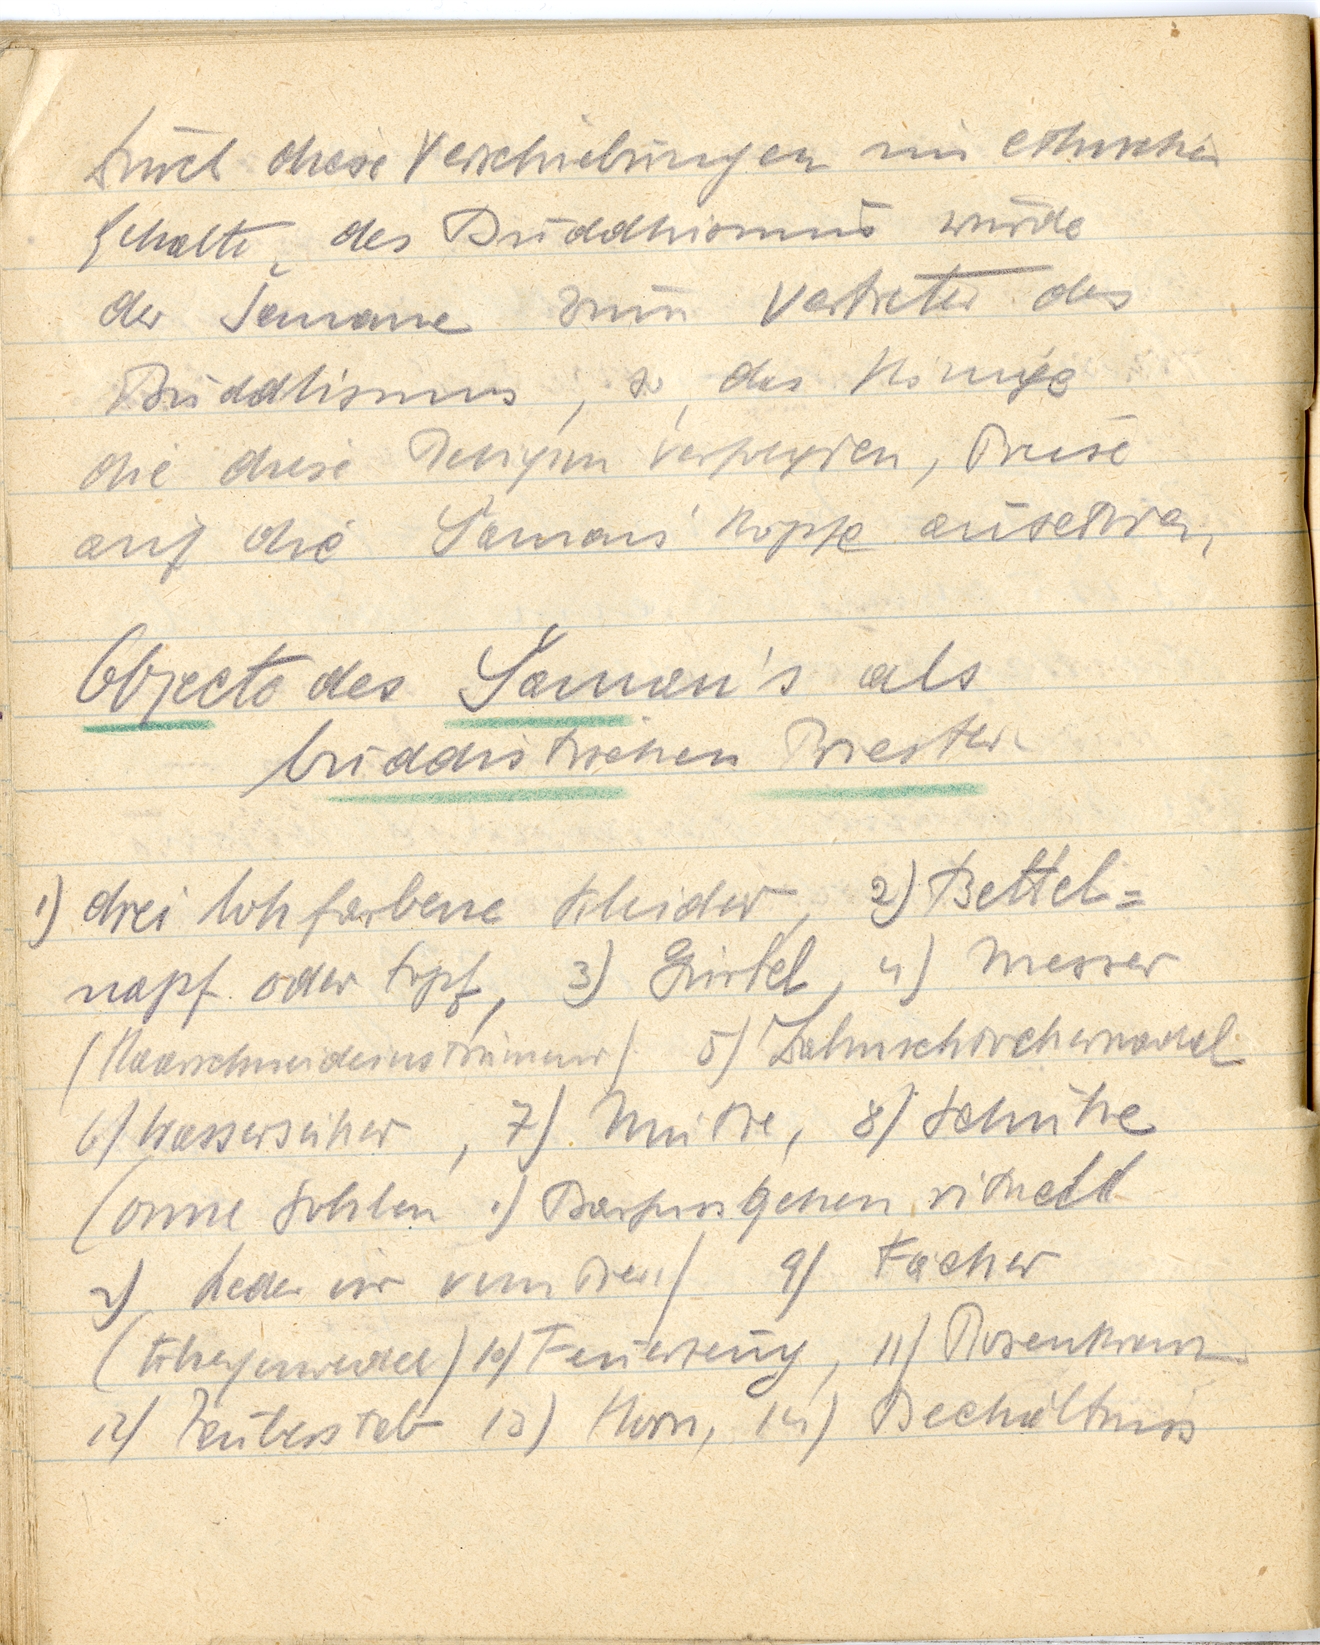 Durch diese Verschiebungen im ethischen
Gehalte, des Buddhismus wurde
der Šamane zum Vertreter des
Buddhismus, so, das Könige
die diese Religion verfolgten, Preise
auf die Šamans Kopfe aussetzten,
Objecte des Šaman's als
buddistischen Priester
1) drei lohfarbene Kleider, 2) Bettel=
napf oder Topf, 3) Gürtel, 4) Messer
(Haarschneideinstrument) 5) Zahnstochernadel
6) Wasserseiher, 7) Mütze, 8) Schuhe
(onne Sohlen 1) Barfussgehen rituell
2) Leder ist vom Tier) 9) Fächer
(Fliegenwedel) 10) Feuerzeug, 11) Rosenkranz
12) Zauberstab 13) Horn, 14) Bechältniss